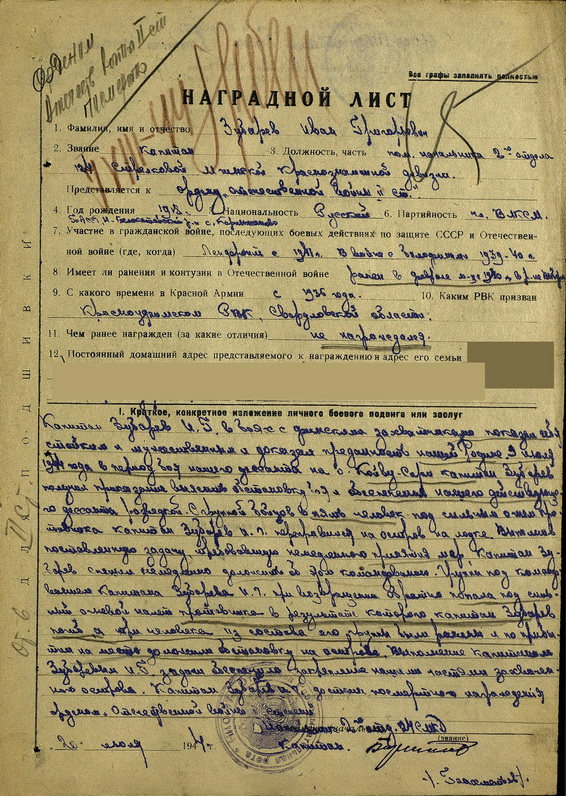 Орденом
Отечеств войны II ст
Посмертно
Все графы заполнять полностью
НАГРАДНОЙ ЛИСТ
1. Фамилия, имя и отчество Зубарев Иван Григорьевич
2. Звание Капитан 3. Должность, часть пом. начальника 2го отдела
стрелковой Краснознаменной дивизии.
Представляется к ордену „Отечественной войны II ст"
4. Год рождения 5. Национальность Русский 6. Партийность чл. ВЛКСМ.
7. Участие в гражданской войне, последующих боевых действиях по защите СССР и Отечествен-
ной войне (где, когда) с 1941 г. В войне с Белофиннами 1939-40 г.
8. Имеет ли ранения и контузии в Отечественной войне ранен в феврале 1940
9. С какого времени в Красной Армии с 1936 года. 10. Каким РВК призван
РВК, Свердловской области.
11. Чем ранее награжден (за какие отличия) не награждался.
12. Постоянный домашний адрес представляемого к награждению и адрес его семьи
I. Краткое, конкретное изложение личного боевого подвига или заслуг
Капитан Зубарев И.Г. в боях с финскими захватчиками показал себя
стойким и мужественным и доказал преданность нашей Родине 9 июля
1944 года в период боя нашего десанта на о. Койву-Сари капитан Зубарев
получил приказание выяснить обстановку для обеспечения нашего действующе-
го десанта. с группой в пять человек под сильным огнем про-
тивника капитан Зубарев И.Г. переправился на остров на лодке. Выполнив
поставленную задачу, требовавшую немедленного принятия мер. Капитан Зу-
барев спешил немедленно доложить об этом командованию. Группа под командо-
ванием капитана Зубарева И.Г. при возвращении обратно попала под силь-
ный огневой налет противника в результате которого капитан Зубарев
погиб а три человека из состава его группы были ранены и по прибы-
тии на место доложили обстановку на острове. Выполнение капитаном
Зубаревым И.Г. задачи обеспечило закрепление нашими частями захвачен-
ного острова. Капитан Зубарев И.Г. достоин посмертного награждения
орденом „Отечественной войны II степени"
Капитан
(звание)
20 июля 1944 г.
ПОДШИВКИ